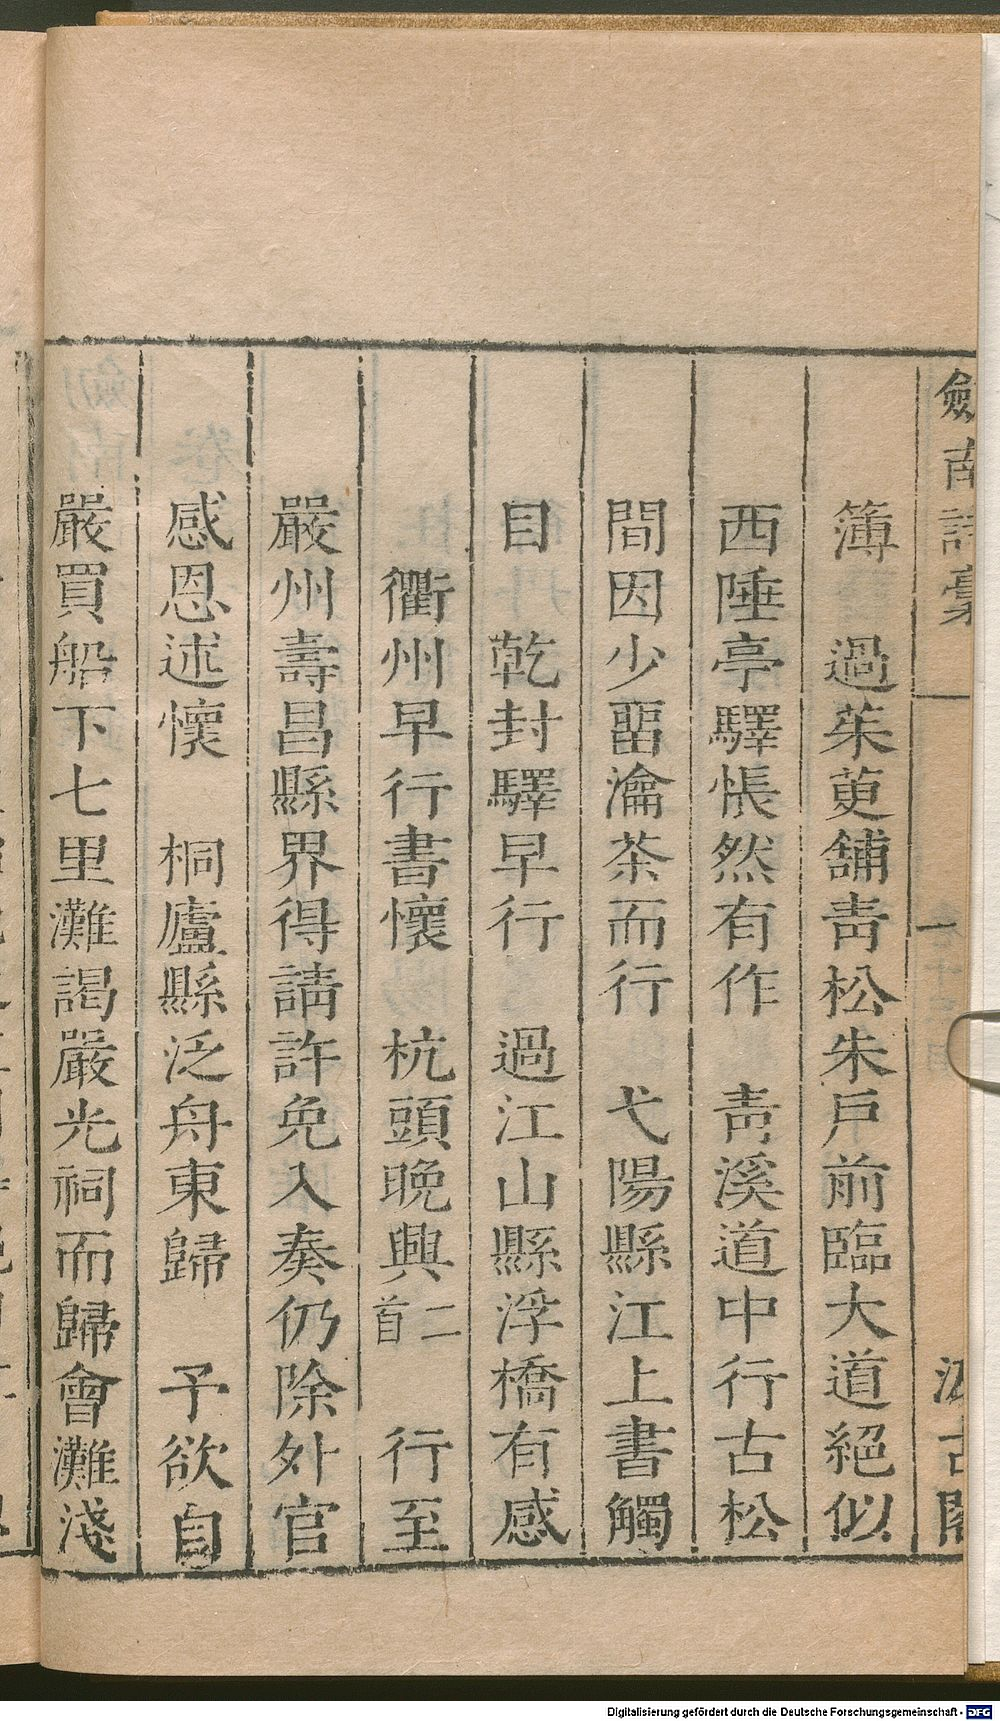 劍南詩稾 一 汲古閣
簿 過茱萸舖靑松朱戶前臨大道絕似
西陲亭驛悵然有作 靑溪道中行古松
間因少畱瀹茶而行 弋陽縣江上書觸
目 乾封驛早行 過江山縣浮橋有感
衢州早行書懷 杭頭晚興二首 行至
嚴州壽昌縣界得請許免入奏仍除外官
感恩述懷 桐廬縣泛舟東歸 予欲自
嚴買船下七里灘謁嚴光祠而歸會灘淺
Digitalisierung gefördert durch die Deutsche Forschungsgemeinschaft - DFG